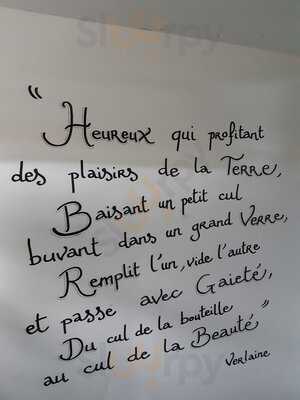 " Heureux qui profitant
des plaisirs de la Terre,
Baisant un petit cul
buvant dans un grand Verre,
Remplit l'un, vide l'autre
et passe avec Gaieté,
Du cul de la bouteille
au cul de la Beauté "
Verlaine
Sluurpy